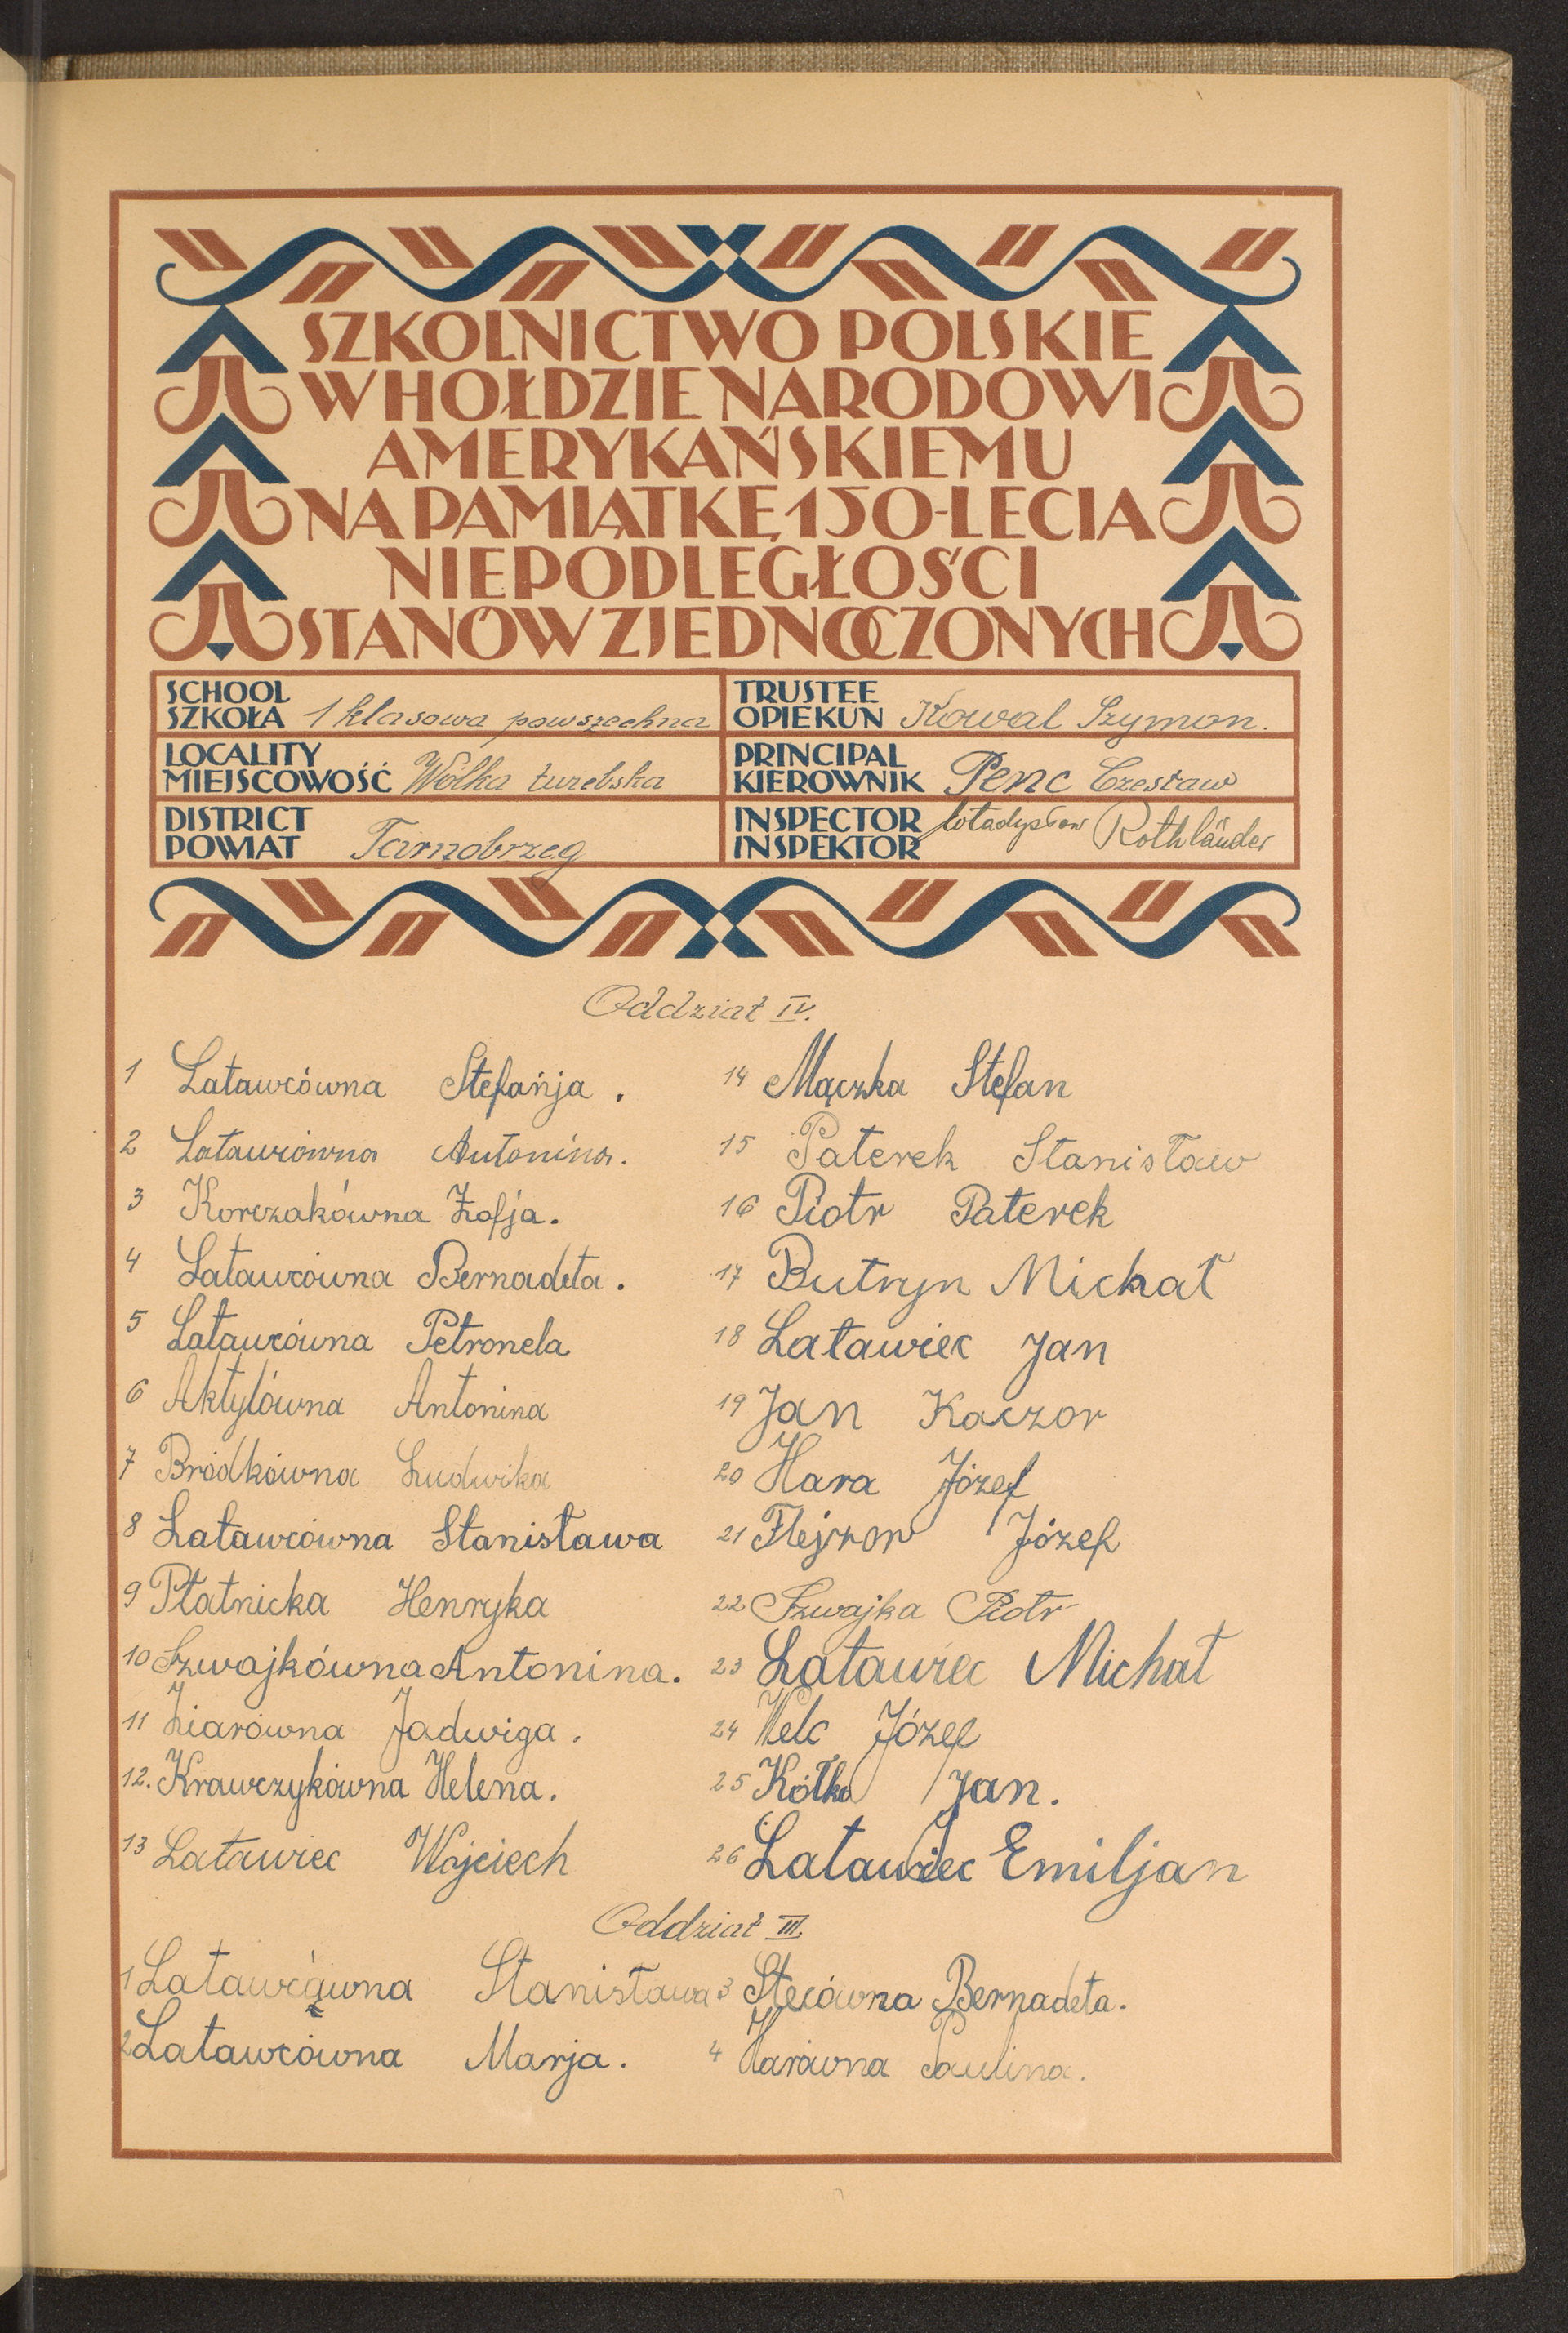 SZKOLNICTWO POLSKIE
W HOŁDZIE NARODOWI
AMERYKAŃSKIEMU
NA PAMIĄTKĘ 150-LECIA
NIEPODLEGŁOŚCI
STANÓW ZJEDNOCZONYCH
SCHOOL
SZKOŁA 1 klasowa powszechna
TRUSTEE
OPIEKUN Kowal Szymon.
LOCALITY
MIEJSCOWOŚĆ Wólka turebska
PRINCIPAL
KIEROWNIK Penc Czesław
DISTRICT
POWIAT Tarnobrzeg
INSPECTOR Władysław Rothländer
INSPEKTOR
Oddział IV.
1 Latawcówna Stefańja.
2 Latawcówna Antonina.
3 Korczakówna Zofja.
4 Latawcówna Bernadeta.
5 Latawcówna Petronela
6 Aktylówna Antonina
7 Bródkówna Ludwika
8 Latawcówna Stanisława
9 Płatnicka Henryka
10 Szwajkówna Antonina.
11 Ziarówna Jadwiga.
12. Krawczykówna Helena.
13 Latawiec Wojciech
14 Mączka Stefan
15 Paterek Stanisław
16 Piotr Paterek
17 Butryn Michał
18 Latawiec Jan
19 Jan Kaczor
20 Hara Józef
21 Flejzor Józef
22 Szwajka Piotr
23 Latawiec Michał
24 Welc Józef
25 Kółko Jan.
26 Latawiec Emiljan
Oddział III.
1 Latawcówna Stanisława
2 Latawcówna Marja.
3 Stecówna Bernadeta.
4 Harówna Paulina.